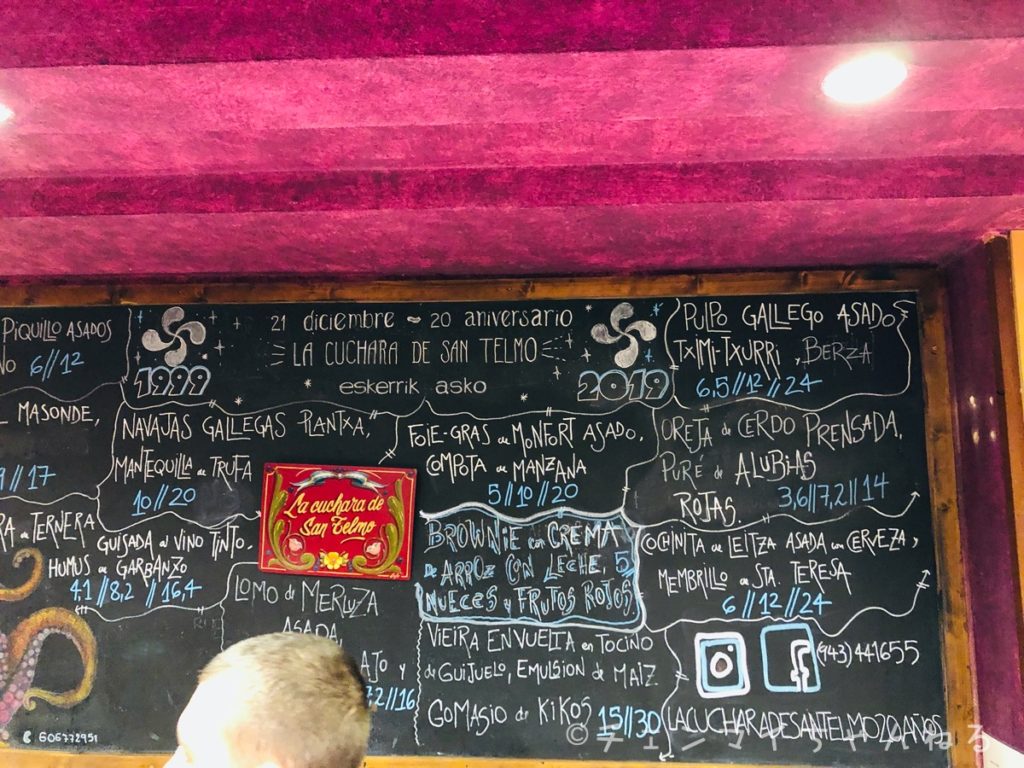 PIQUILLO ASADOS
6//12
MASONDE,
//17
TERNERA
GUISADA al VINO TINTO.
HUMUS de GARBANZO
4,1//8,2//16,4
606772951
21 diciembre ~ 20 aniversario
LA CUCHARA DE SAN TELMO
eskerrik asko
1999
2019
NAVAJAS GALLEGAS PLANTXA,
MANTEQUILLA de TRUFA
10//20
La cuchara de
San Telmo
LOMO de MERLUZA
ASADA,
AJO y
//16
FOIE-GRAS de MONFORT ASADO,
COMPOTA de MANZANA
5//10//20
BROWNIE con CREMA
de ARROZ CON LECHE, 5
NUECES y FRUTOS ROJOS.
VIEIRA ENVUELTA en TOCINO
de GUIJUELO, EMULSION de MAIZ
GOMASIO de KIKOS 15//30
PULPO GALLEGO ASADO
TXIMI-TXURRI, BERZA
6,5//12//24
OREJA de CERDO PRENSADA,
PURÉ de ALUBIAS
ROJAS. 3,6//7,2//14
COCHINITA de LEITZA ASADA con CERVEZA,
MEMBRILLO de STA. TERESA
6//12//24
(943) 441655
LACUCHARADESANTELMO20AÑOS
©チェンマイちゃんねる